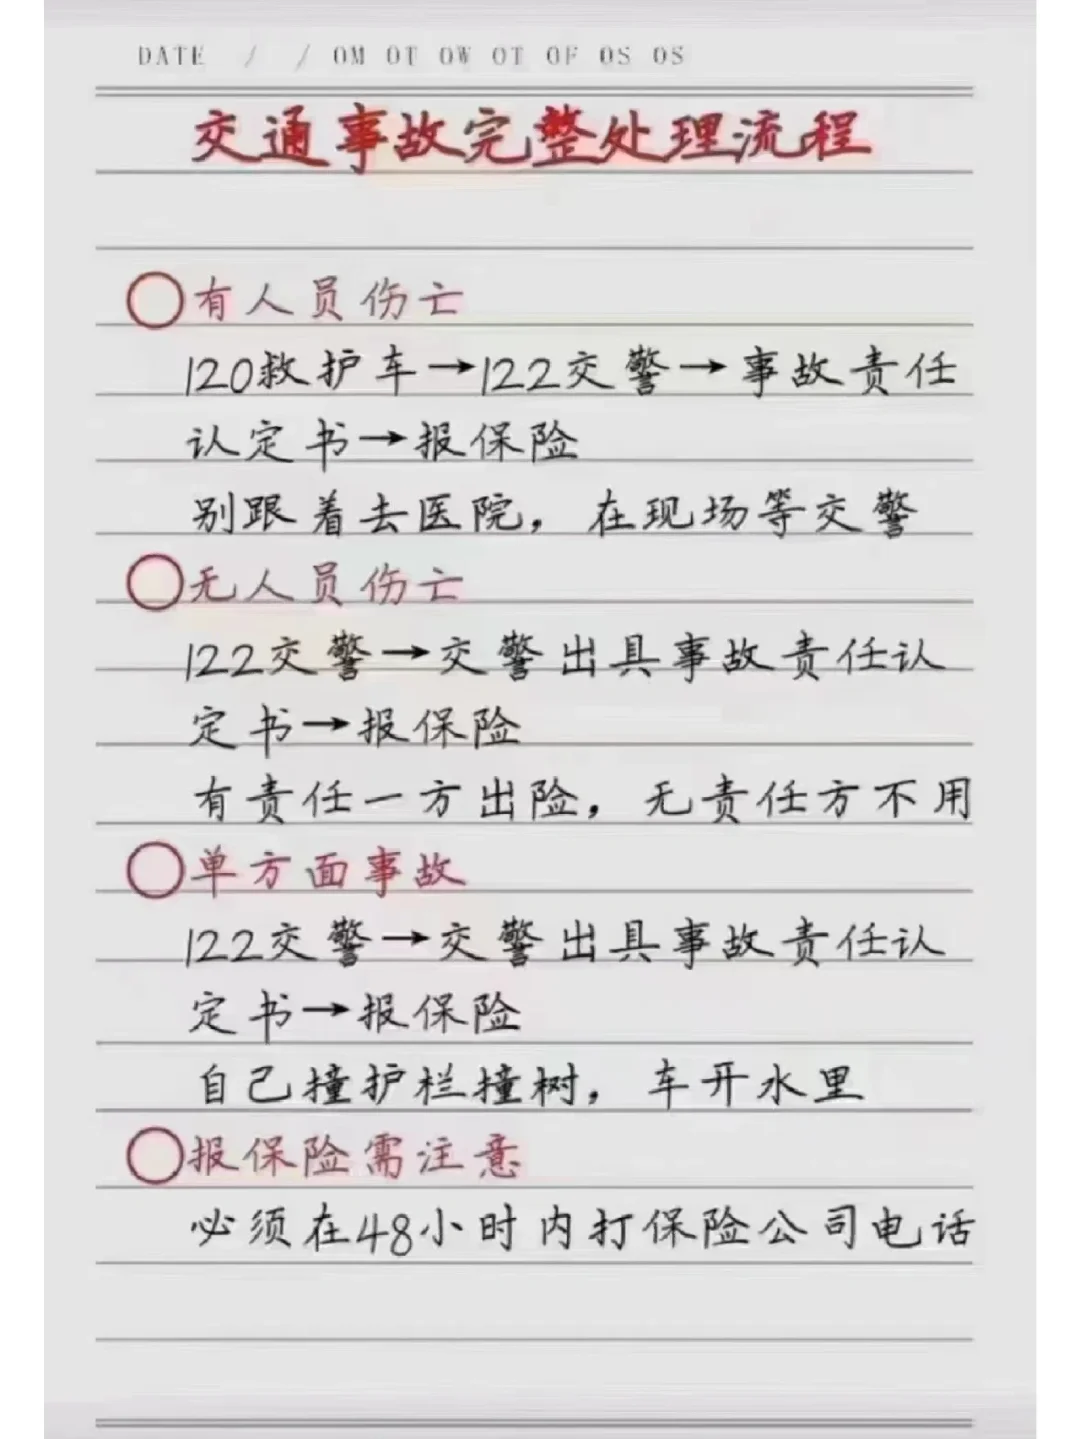 DATE / / OM OT OW OT OF OS OS
交通事故完整处理流程
有人员伤亡
120救护车→122交警→事故责任
认定书→报保险
别跟着去医院，在现场等交警
无人员伤亡
122交警→交警出具事故责任认
定书→报保险
有责任一方出险，无责任方不用
单方面事故
122交警→交警出具事故责任认
定书→报保险
自己撞护栏撞树，车开水里
报保险需注意
必须在48小时内打保险公司电话